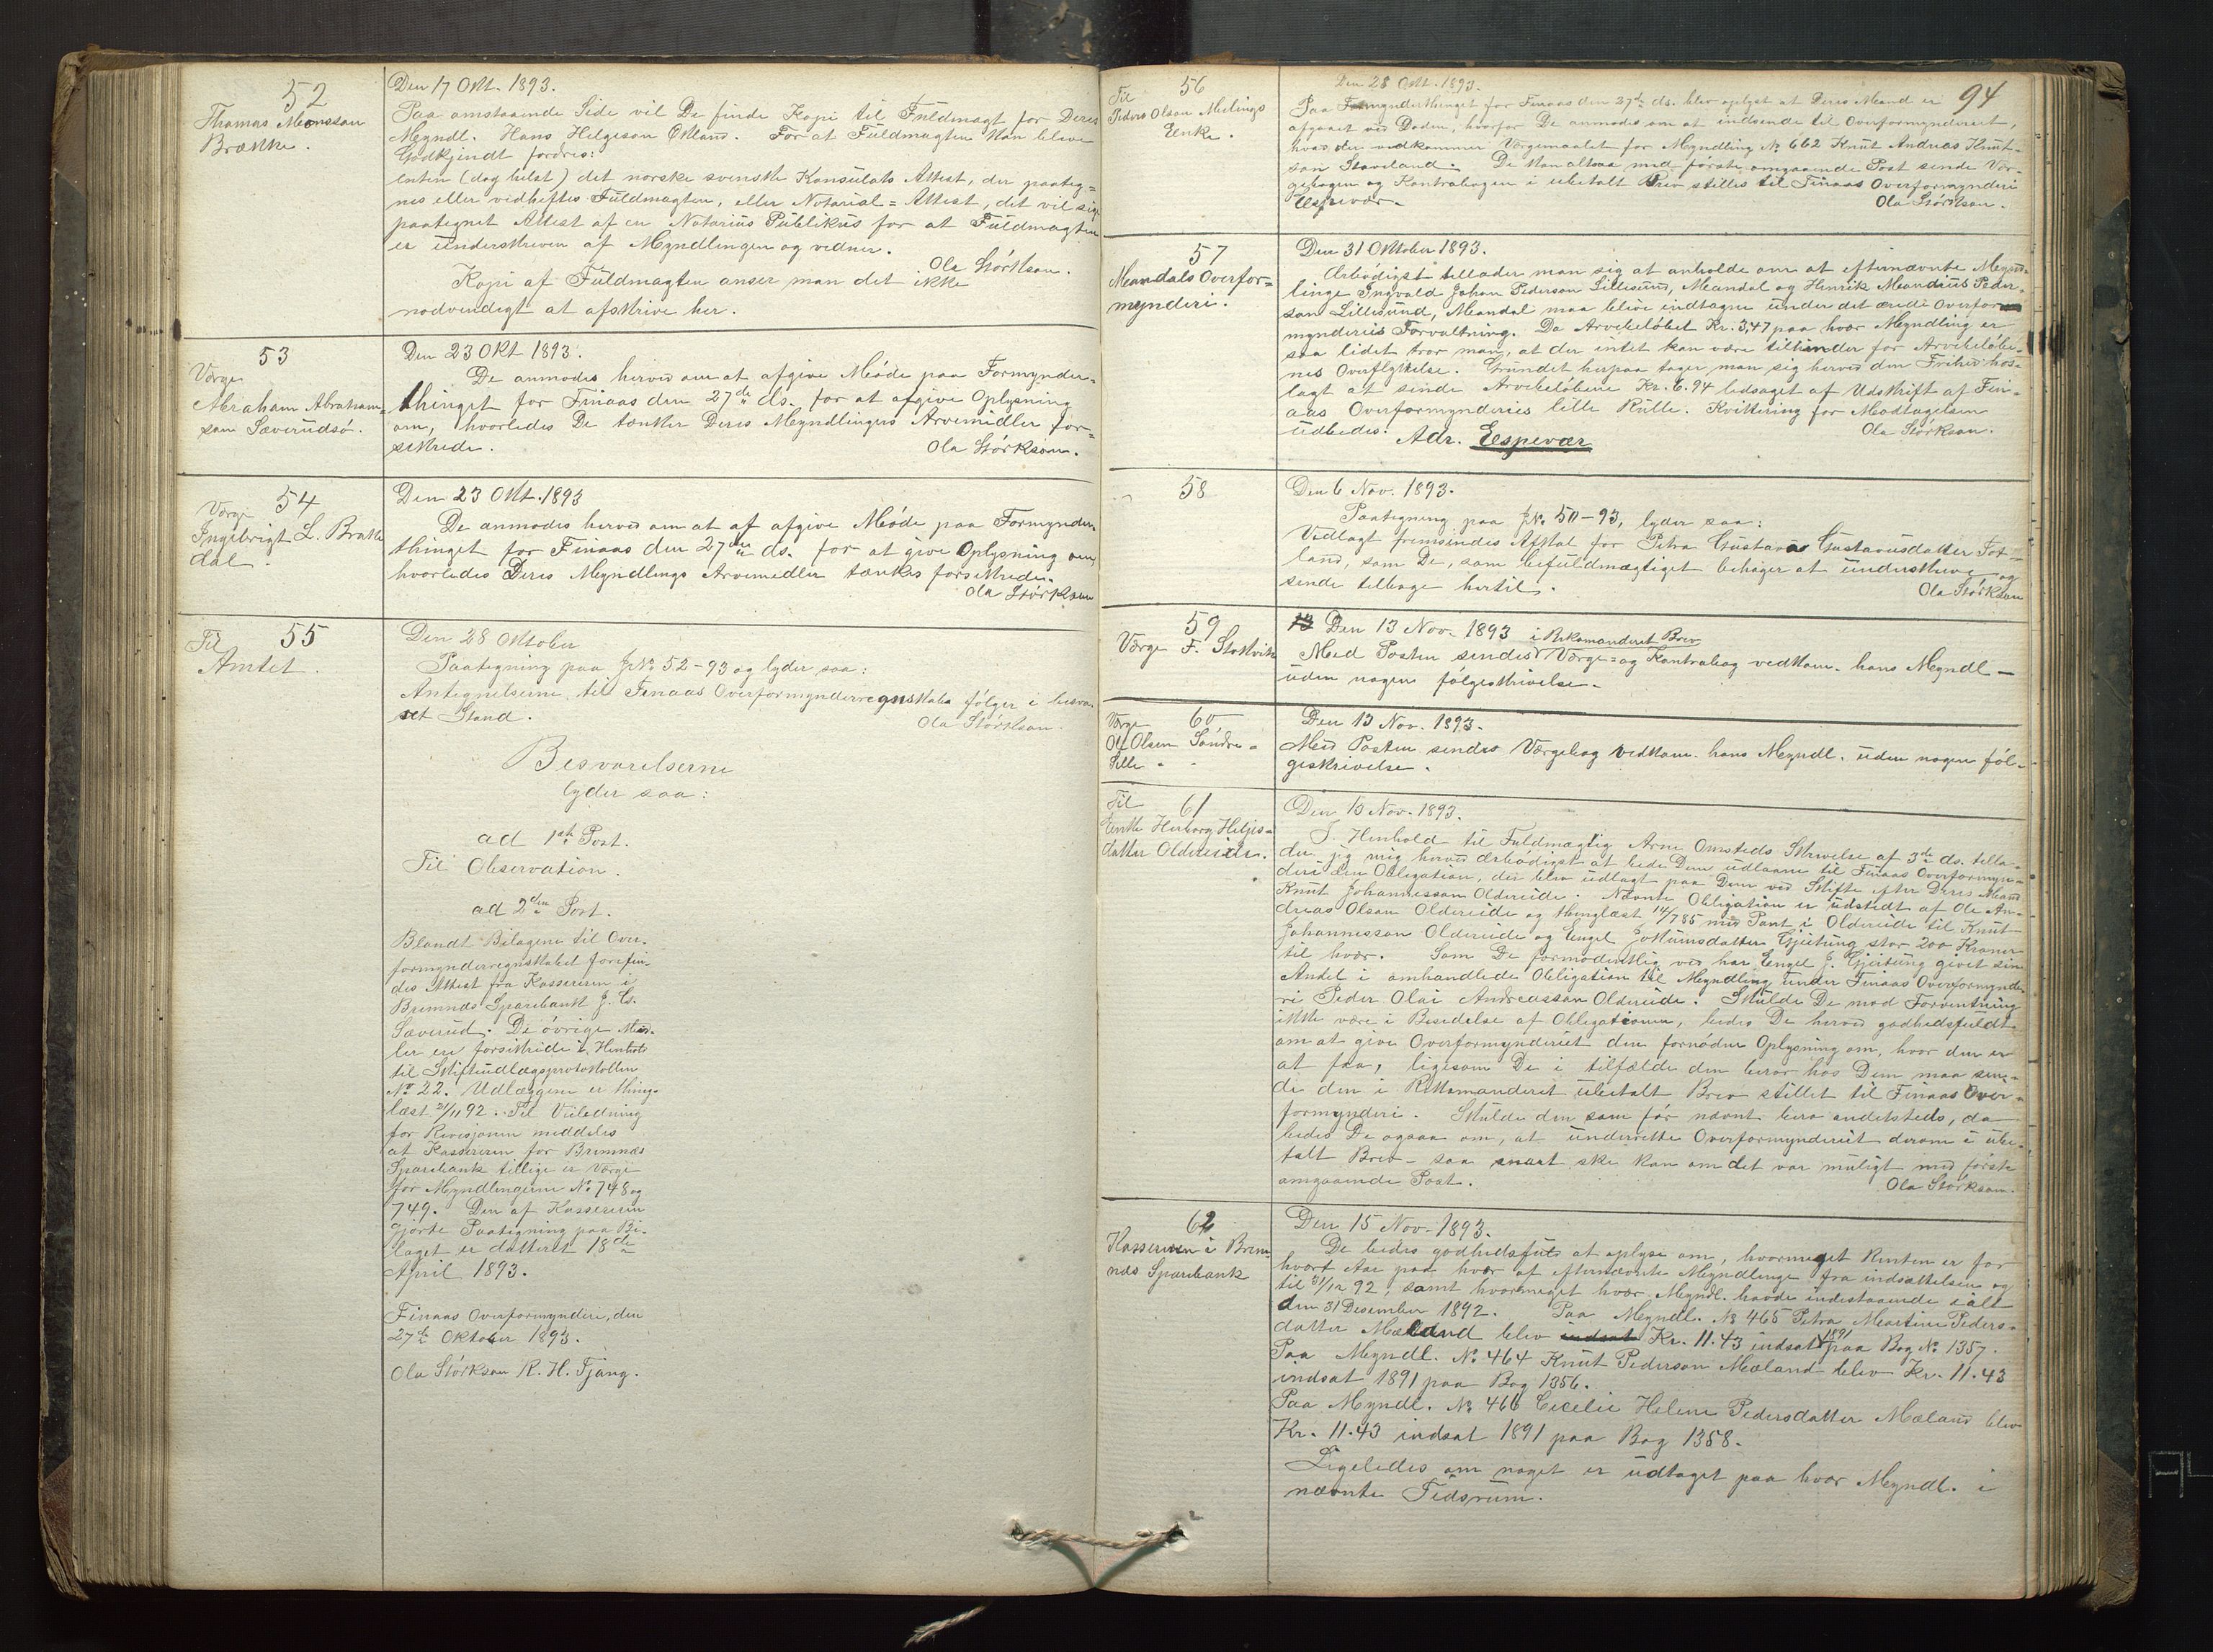 52
Thomas Monsson
Brække.
Den 17 Okt. 1893.
Paa omstaaende Side vil De finde Kopi til Fuldmagt for Deres
Myndl. Hans Helgeson Økland. For at Fuldmagten kan blive
Godkjendt fordres:
enten (dog helst) det norske svenske Konsulats Attest, der paateg=
nes eller vedheftes Fuldmagten, eller Notarial=Attest, det vil sige
paategnet Attest af en Notarius Publikus for at Fuldmagten
er underskreven af Myndlingen og vidner.
Ola Størkson.
Kopi af Fuldmagten anser man det ikke
nødvendigt at afskrive her.
53
Værge
Abraham Abraham=
son Sæverudsø.
Den 23 Okt 1893.
De anmodes herved om at afgive Møde paa Formynder=
thinget for Finaas den 27de ds. for at afgive Oplysning
om, hvorledes De tænker Deres Myndlingers Arvemidler for=
sikrede.
Ola Størkson.
54
Værge
Ingebrigt L. Brakke
dal.
Den 23 Okt. 1893
De anmodes herved om at af afgive Møde paa Formynder=
thinget for Finaas den 27de ds. for at give Oplysning om,
hvorledes Deres Myndlings Arvemidler tænkes forsikrede.
Ola Størkson
Til 55
Amtet.
Den 28 Oktober
Paategning paa J№ 52-93 og lyder saa:
Antegnelserne til Finaas Overformynderregnskabs følger i besva-
ret Stand.
Ola Størkson.
Besvarelserne
lyder saa:
ad 1ste Post.
Til Observation.
ad 2den Post.
Blandt Bilagene til Over-
formynderregnskabet forefin-
des Attest fra Kassereren i
Bremnes Sparebank J. C.
Sæverud. De øvrige Mid-
ler er forsikrede i Henhold
til Skifteudlægsprotokollen
№ 22. Udlæggene er thing-
læst 21/11 92. Til Veiledning
for Revisjonen meddeles
at Kassereren for Bremnes
Sparebank tillige er Værge
for Myndlingerne № 748 og
749. Den af Kassereren
gjorte Paategning paa Bi-
laget er datteret 18de
April 1893.
Finaas Overformynderi, den
27de Oktober 1893.
Ola Størkson R. H. Tjang.
94
Til 56
Peders Olson Melings
Enke.
Den 28 Okt. 1893.
Paa Formynderthinget for Finaas den 27de ds. blev oplyst at Deres Mand er
afgaaet ved Døden, hvorfor De anmodes om at indsende til Overformynderiet,
hvad der vedkommer Værgemaalet for Myndling № 662 Knut Andreas Knut-
son Staveland. De kan altsaa med første omgaaende Post sende Vær-
gebogen og Kontrabogen i ubetalt Brev stillet til Finaas Overformynderi
Espevær.
Ola Størkson.
57
Mandals Overfor=
mynderi.
Den 31 Oktober 1893.
Ærbødigst tillader man sig at anholde om at efternævnte Mynd-
linge Ingvald Johan Pederson Lillesund, Mandal og Henrik Mandius Peder-
son Lillesund, Mandal maa blive indtagne under det ærede Overfor
mynderis Forvaltning. Da Arvebeløbet Kr. 3,47 paa hver Myndling er
saa lidet tror man, at der intet kan være tilhinder for Arvebeløbe-
nes Overflyttelse. Grundet herpaa tager man sig herved den Frihed hos-
lagt at sende Arvebeløbene Kr. 6.94 ledsaget af Udskrift af Fin-
aas Overformynderies lille Rulle. Kvittering for Modtagelsen
udbedes.
Ola Størkson.
Adr. Espevær
58
Den 6 Nov. 1893.
Paategning paa J№ 50-93, lyder saa:
Vedlagt fremsendes Afkal for Petra Gustava Gustavusdatter Tot-
land, som De, som befuldmægtiget behager at underskrive og
sende tilbage hertil.
Ola Størkson
59
Værge F. Stokvik
Den 13 Nov. 1893
i Rekomanderet Brev
Med Posten sendes Værge= og Kontrabog vedkom. hans Myndl -
uden nogen følgeskrivelse.
Værge 60
Ol Olsen Søndre=
Lille " "
Den 13 Nov. 1893.
Med Posten sendes Værgebog vedkom. hans Myndl. uden nogen føl=
geskrivelse.
Til 61
Enke Herborg Helges=
datter Oldereide.
Den 13 Nov. 1893.
I Henhold til Fuldmægtig Arne Omsteds Skrivelse af 3de ds. tilla-
der jeg mig herved ærbødigst at bede Dem udlaane til Finaas Overformyn-
deri den Obligation, der blev udlagt paa Dem ved Skifte efter Deres Mand
Knut Johannesson Oldereide. Nævnte Obligation er udstedt af Ole An-
dreas Olson Oldereide og thinglæst 14/7 85 med Pant i Oldereide til Knut
Johannesson Oldereide og Engel Jokumsdatter Gjeitung stor 200 Kroner
til hver. Som De formodentlig ved har Engel J. Gjeitung givet sin
Andel i omhandlede Obligation til Myndling under Finaas Overformynde-
ri Peder Olai Andreasson Oldereide. Skulde De mod Forventning
ikke være i Besiddelse af Obligationen, bedes De herved godhedsfuldt
om at give Overformynderiet den fornødne Oplysning om, hvor den er
at faa, ligesom De i tilfælde den beror hos Dem maa sen-
de den i Rekomanderet ubetalt Brev stillet til Finaas Over-
formynderi. Skulde den som før nævnt bero andetsteds, da
bedes De ogsaa om, at underrette Overformynderiet derom i ube-
talt Brev - saa snart ske kan om det var muligt med første
omgaaende Post.
Ola Størkson.
62
Kassereren i Brem-
nes Sparebank
Den 15 Nov. 1893.
De bedes godhedsfuld at oplyse om, hvormeget Renten er for
hvert Aar paa hver af efternævnte Myndlinge fra indsættelsen og
til 31/12 92, samt hvormeget hver Myndl. havde indestaaende ialt
den 31 Desember 1892. Paa Myndl. № 465 Petra Martine Peders-
datter Mæland blev indsat Kr. 11.43 indsat 1891 paa Bog № 1357.
Paa Myndl. № 464 Knut Pederson Mæland blev Kr. 11.43
indsat 1891 paa Bog 1356.
Paa Myndl. № 466 Cecelie Helene Pedersdatter Mæland blev
Kr. 11.43 indsat 1891 paa Bog 1358.
Ligeledes om noget er udtaget paa hver Myndl. i
nævnte Tidsrum.